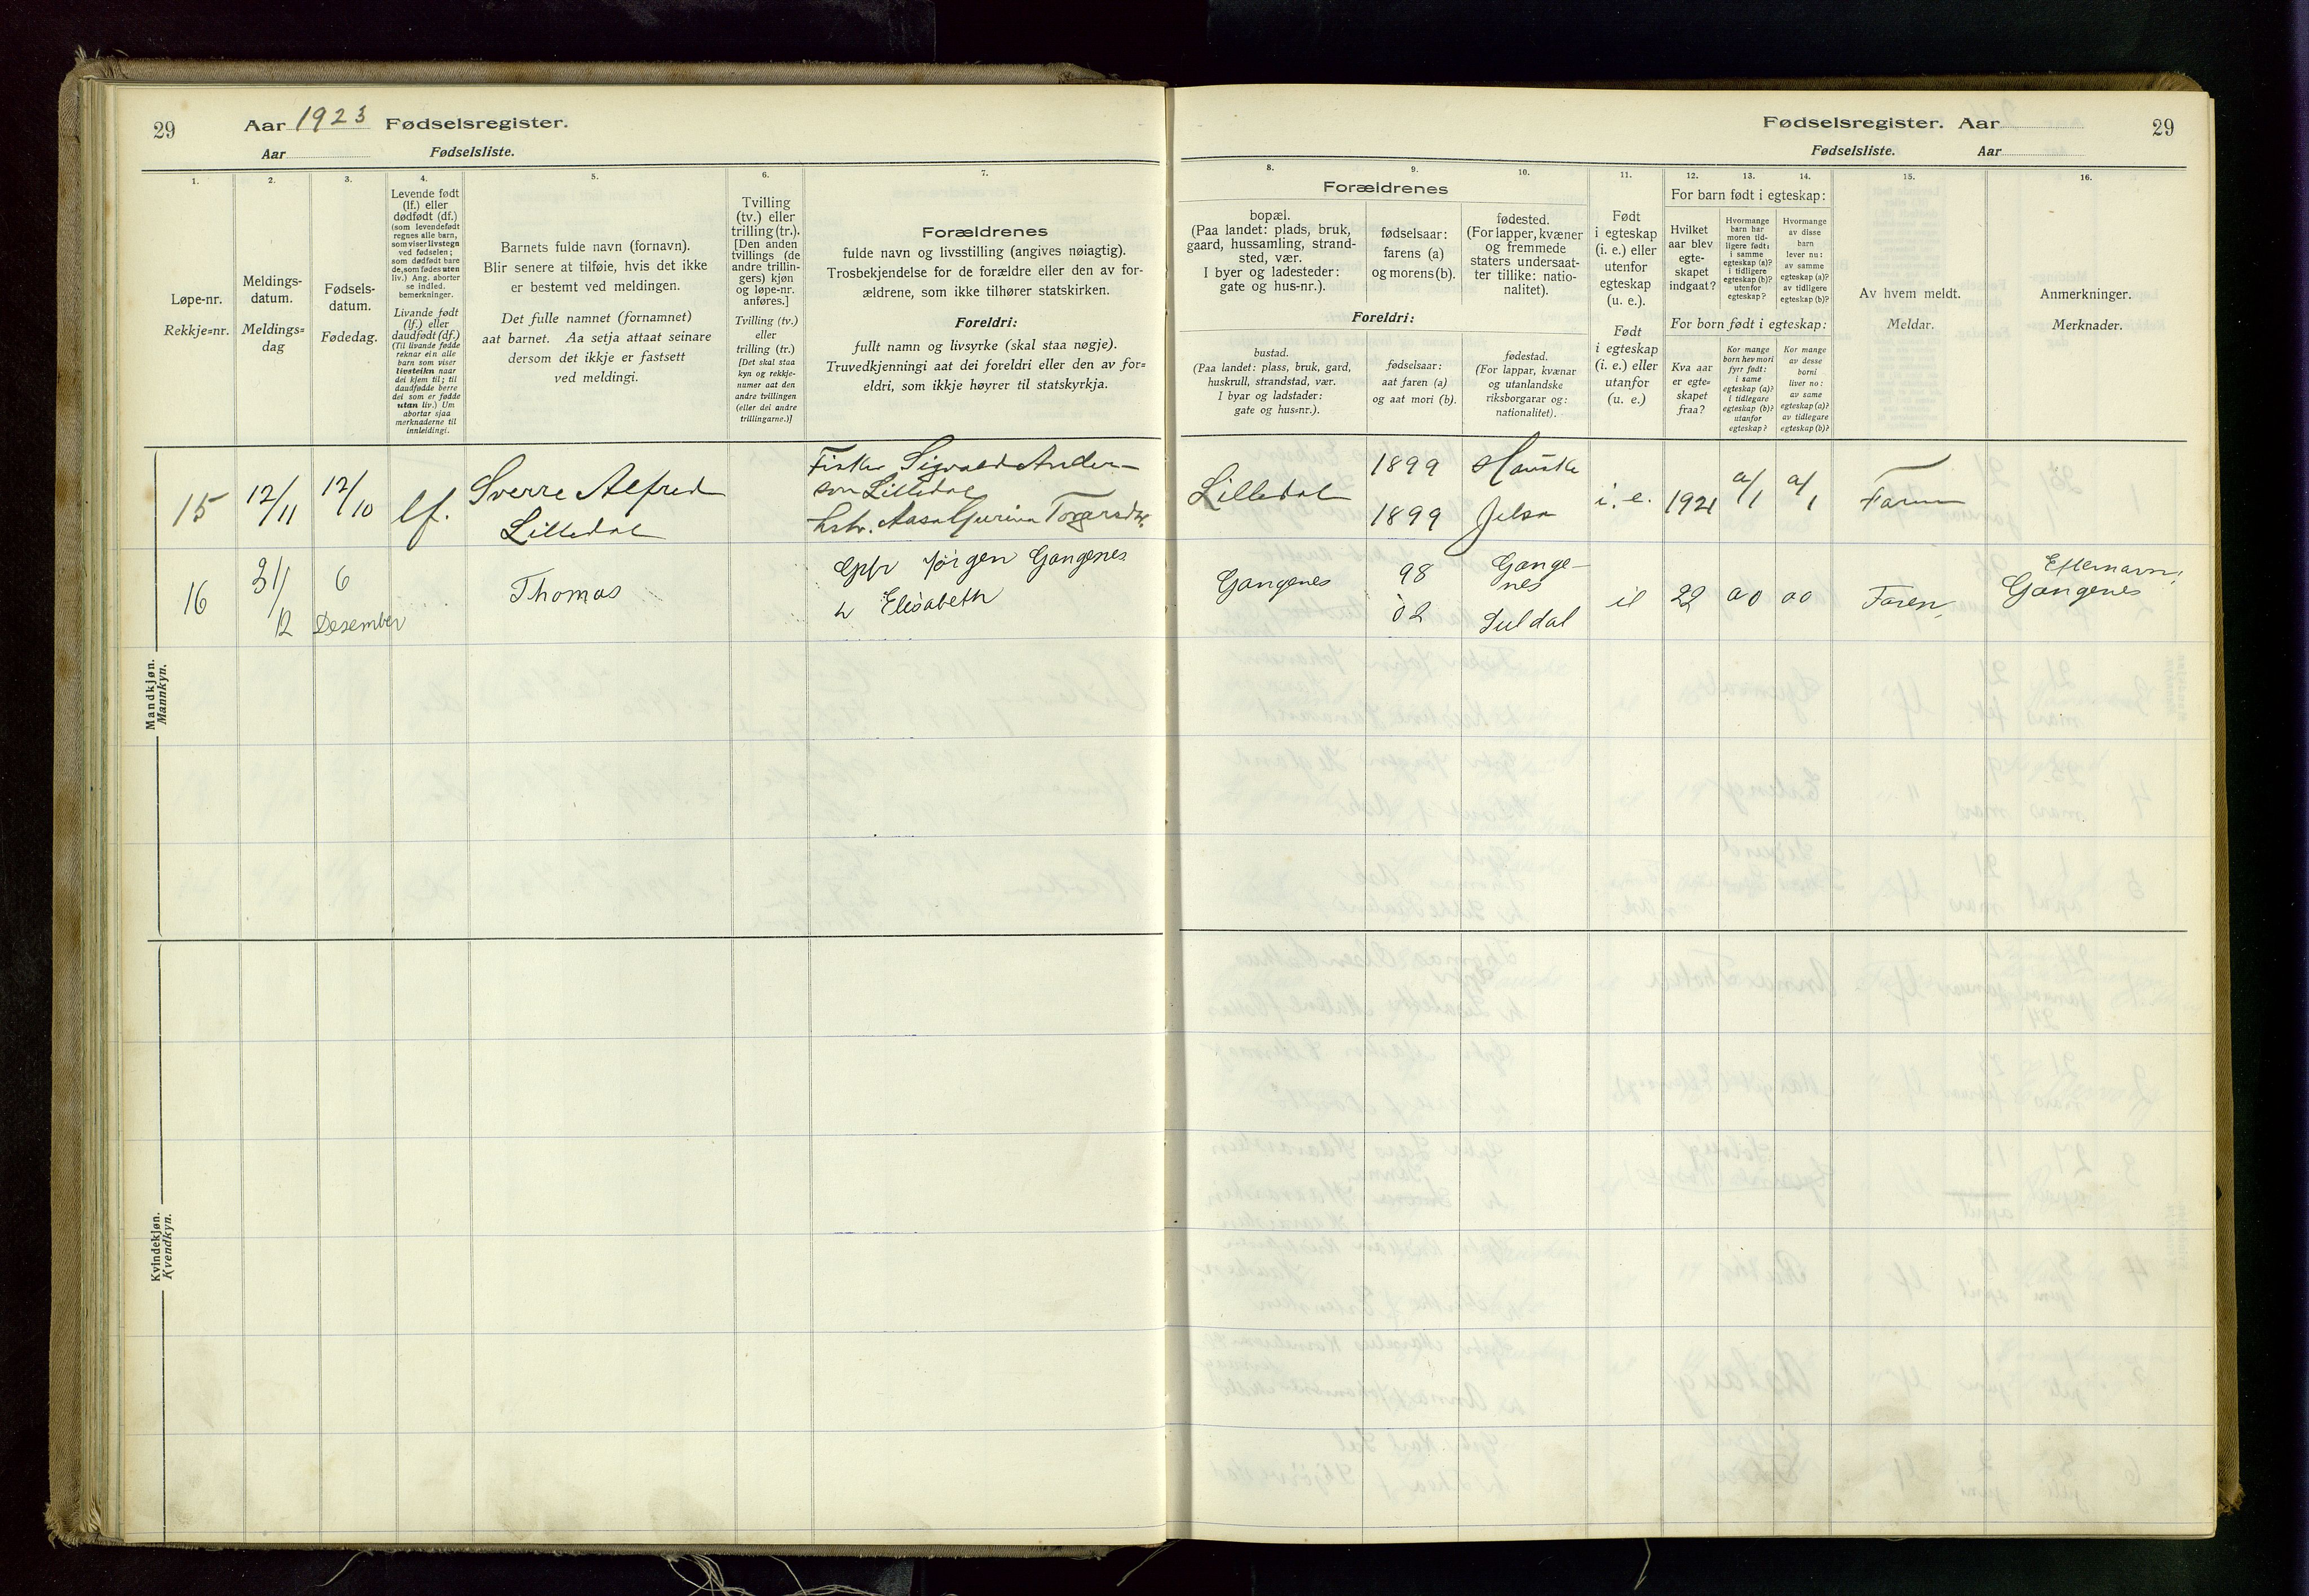 29
Aar 1923 Fødselsregister.
Aar Fødselsliste.
Fødselsregister. Aar
29
Fødselsliste. Aar
1.
Løpe-nr.
Rekkje=nr.
2.
Meldings-
datum.
Meldings=
dag
3.
Fødsels-
datum.
Fødedag.
4.
Levende født
(lf.) eller
dødfødt (df.)
(som levendefødt
regnes alle barn,
som viser livstegn
ved fødselen;
som dødfødt bare
de, som fødes uten
liv.) Ang. aborter
se indled.
bemerkninger.
Livande født
(lf.) eller
daudfødt (df.)
(Til livande fødde
reknar ein alle
barn som viser
livsteikn naar
dei kjem til; til
daudfødde berre
dei som er fødde
utan liv.) Um
abortar sjaa
merknaderne til
innleidingi.
5.
Barnets fulde navn (fornavn).
Blir senere at tilføie, hvis det ikke
er bestemt ved meldingen.
Det fulle namnet (fornamnet)
aat barnet. Aa setja attaat seinare
dersom det ikkje er fastsett
ved meldingi.
6.
Tvilling
(tv.) eller
trilling (tr.).
[Den anden
tvillings (de
andre trillin-
gers) kjøn
og løpe-nr.
anføres.]
Tvilling (tv.)
eller
trilling (tr.)
[Det skal staa
kyn og rekkje-
numer aat den
andre tvillingen
(eller dei andre
trillingarne.)]
7.
Forældrenes
fulde navn og livsstilling (angives nøiagtig).
Trosbekjendelse for de forældre eller den av for-
ældrene, som ikke tilhører statskirken.
Foreldri:
fullt namn og livsyrke (skal staa nøgje).
Truvedkjenningi aat dei foreldri eller den av for=
eldri, som ikkje høyrer til statskyrkja.
Forældrenes
8.
bopæl.
(Paa landet: plads, bruk,
gaard, hussamling, strand-
sted, vær.
I byer og ladesteder:
gate og hus-nr.).
9.
fødselsaar:
farens (a)
og morens (b).
10.
fødested.
(For lapper, kvæner
og fremmede
staters undersaat-
ter tillike: natio-
nalitet).
Foreldri:
bustad.
(Paa landet: plass, bruk, gard,
huskrull, strandstad, vær.
I byar og ladstader:
gate og hus=nr.).
fødselsaar:
aat faren (a)
og aat mori (b).
fødestad.
(For lappar, kvænar
og utanlandske
riksborgarar og:
nationalitet).
11.
Født
i egteskap
(i. e.) eller
utenfor
egteskap
(u. e.).
Født
i egteskap
(i. e.) eller
utanfor
(u. e.)
12. 13. 14.
For barn født i egteskap:
Hvilket
aar blev
egte-
skapet
indgaat?
Hvormange
barn har
moren tid-
ligere født:
i samme
egteskap (a)?
i tidligere
egteskap (b)?
utenfor
egteskap?
Hvormange
av disse
barn
lever nu:
av samme
egteskap (a)?
av tidligere
egteskap (b)?
For born født i egteskap:
Kva aar
er egte=
skapet
fraa?
Kor mange
born hev mori
fyrr født:
i same
egteskap (a)?
i tidlegare
egteskap (b)?
utanfor
egteskap?
Kor mange
av desse
borni
liver no:
av same
egteskap (a)?
av tidlegare
egteskap (b)?
15.
Av hvem meldt.
Meldar.
16.
Anmerkninger.
Merknader.
Mandkjøn.
Mannkyn.
15 12/11 12/10 lf. Sverre Alfred
Lilledal
Fisker Sigvald Ander-
sen Lilledal
hstr. Aasa Gurina Torgersdtr.
Lilledal 1899
1899
Jelsa
i. e. 1921 a/1 a/1 Faren
16 31/12 6
Desember
Thomas
Gpbr Jörgen Gangenes
h Elisabeth
Gangenes 98
02
Gange-
nes
Suldal
il 22 a0 a0 Faren
Efternavn:
Gangenes
Kvindekjøn.
Kvendkyn.